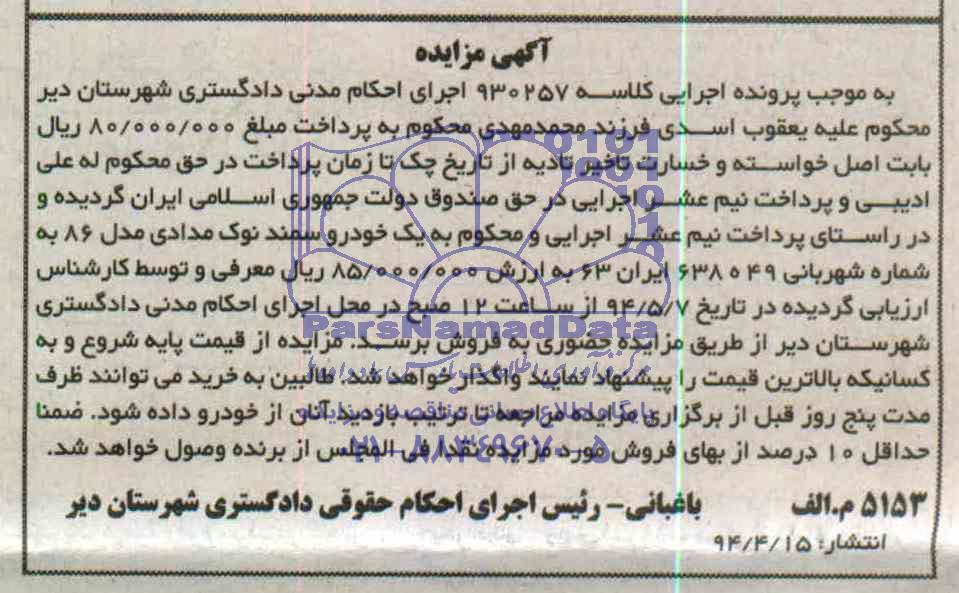 آگهی مزایده
به موجب پرونده اجرایی کلاسه ۹۳۰۲۵۷ اجرای احکام مدنی دادگستری شهرستان دیر
محکوم علیه یعقوب اسدی فرزند محمدمهدی محکوم به پرداخت مبلغ ۸۰/۰۰۰/۰۰۰ ریال
بابت اصل خواسته و خسارت تاخیر تادیه از تاریخ چک تا زمان پرداخت در حق محکوم له علی
ادیبی و پرداخت نیم عشر اجرایی در حق صندوق دولت جمهوری اسلامی ایران گردیده و
در راستای پرداخت نیم عشر اجرایی و محکوم به یک خودرو سمند نوک مدادی مدل ۸۶ به
شماره شهربانی ۴۹ ه ۶۳۸ ایران ۶۳ به ارزش ۸۵/۰۰۰/۰۰۰ ریال معرفی و توسط کارشناس
ارزیابی گردیده در تاریخ ۹۴/۵/۷ از ساعت ۱۲ صبح در محل اجرای احکام مدنی دادگستری
شهرستان دیر از طریق مزایده حضوری به فروش برسد. مزایده از قیمت پایه شروع و به
کسانیکه بالاترین قیمت را پیشنهاد نمایند واگذار خواهد شد. طالبین به خرید می توانند ظرف
مدت پنج روز قبل از برگزاری مزایده مراجعه تا ترتیب بازدید آنان از خودرو داده شود. ضمنا
حداقل ۱۰ درصد از بهای فروش مورد مزایده نقدا فی المجلس از برنده وصول خواهد شد.
۵۱۵۳ م.الف باغبانی- رئیس اجرای احکام حقوقی دادگستری شهرستان دیر
انتشار: ۹۴/۴/۱۵
ParsNamadData
۰۲۱-۸۸۳۴۹۶۷۰-۵